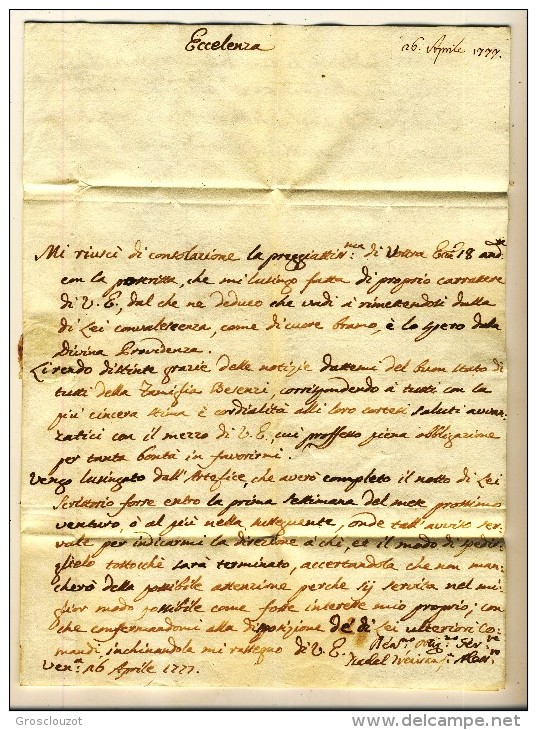 Eccelenza
26. Aprile 1777.
Mi riuscì di consolazione la preggiattis.ma di Vostra Ecc.a 18 and.te
con la poscritta, che mi lusingo fatta di proprio carrattere
di V. E., dal che ne deduco che vadi à rimettendosi dalla
di Lei convalescenza, come di cuore bramo, è lo spero dalla
Divina Providenza.
Li rendo distinte grazie delle notizie dattemi del buon stato di
tutti della Famiglia Besenzi, corrispondendo à tutti con la
più sincera stima è cordialità alli loro cortesi saluti avvan-
zatici con il mezzo di V. E., cui professo piena obbligazione
per tanta bontà in favorirmi.
Vengo lusingato dall'Artefice, che averò completo il notto di Lei
Scrittorio forse entro la prima settimana del mese prossimo
venturo, ò al più nella susseguente, onde tall'avviso ser-
vale per indicarmi la direzione à chi, et il modo di spedir-
glielo tostocchè sarà terminato, accertandola che non man-
cherò della possibile attenzione perche sij servita nel mi-
glior modo possibile come fosse interesse mio proprio; con
che confermandomi alla disposizione de di Lei ulteriori Co-
mandi inchinandola mi rassegno di V. E.
Ven.a 26 Aprile 1777.
Grosclouzot
delcampe.net